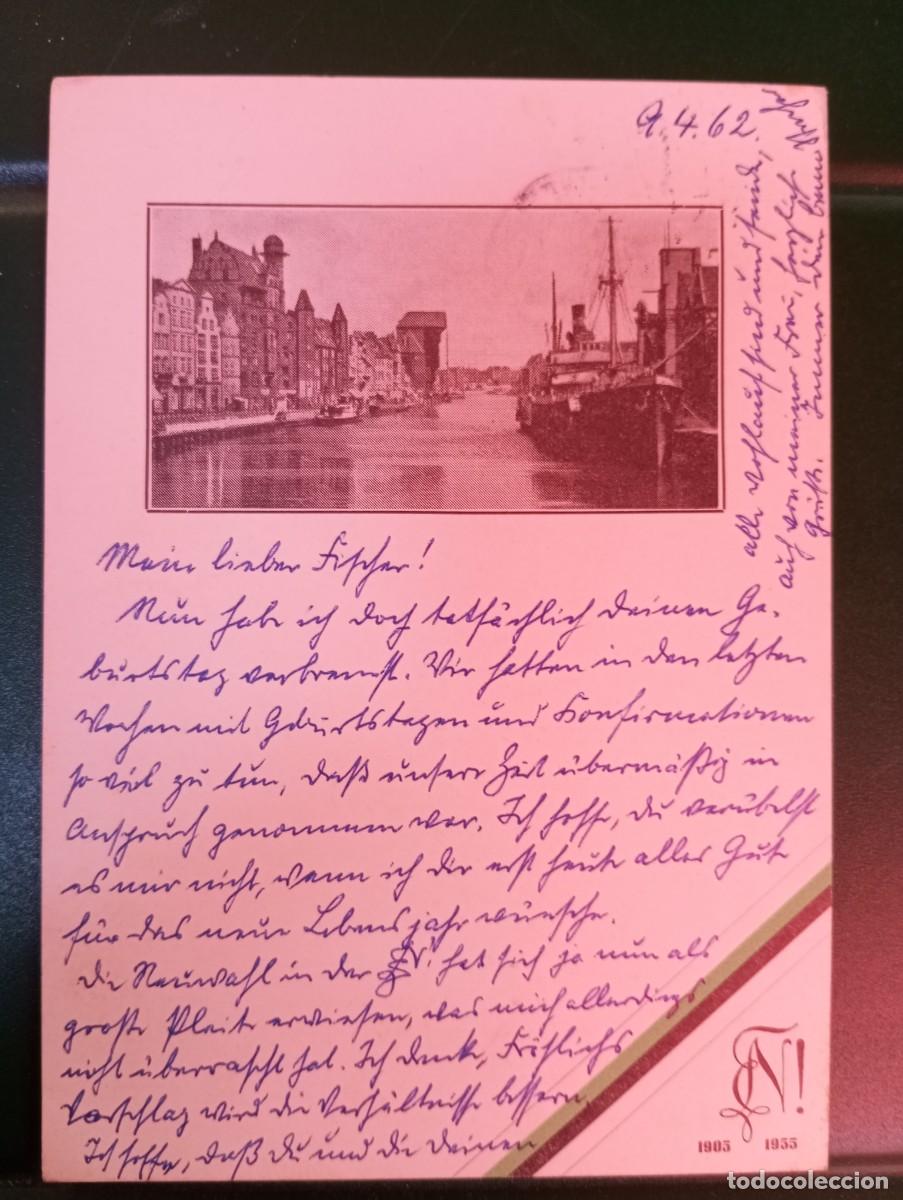 9.4.62.
Mein lieber Fischer!
Nun habe ich doch tatsächlich deinen Ge-
burtstag verbremst. Wir hatten in den letzten
Wochen mit Geburtstagen und Konfirmationen
so viel zu tun, daß unsere Zeit übermäßig in
Anspruch genommen war. Ich hoffe, du verübelst
es mir nicht, wenn ich dir erst heute alles Gute
für das neue Lebensjahr wünsche.
Die Neuwahl in der hat sich ja nun als
große Pleite erwiesen, was mich allerdings
nicht überrascht hat. Ich denke, Fröhlichs
Vorschlag wird die Verhältnisse bessern.
Ich hoffe, daß Du und die Deinen
alle wohlauf sind und sende,
auch von meiner Frau, herzliche
Grüße. Immer Dein
N!
1905 1955
todocoleccion